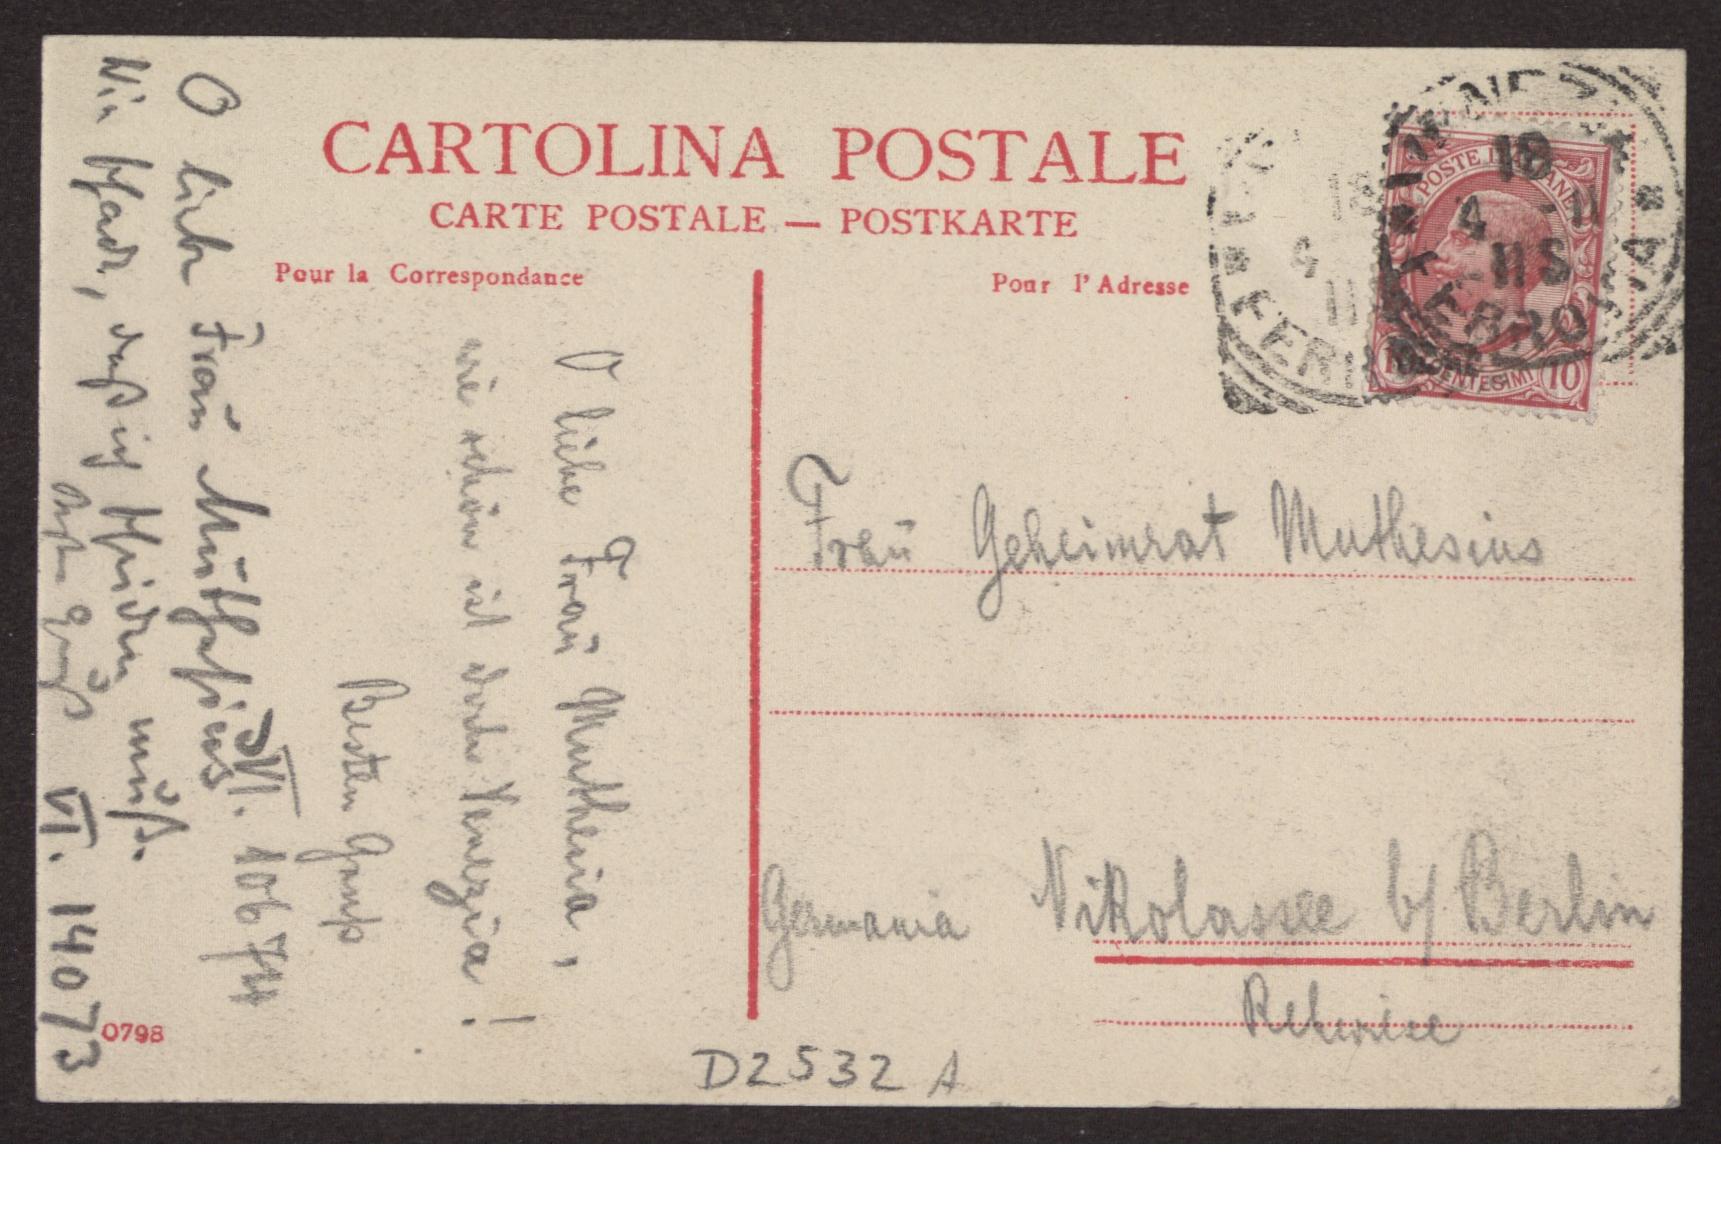 CARTOLINA POSTALE
CARTE POSTALE — POSTKARTE
Pour la Correspondance
Pour l'Adresse
POSTE ITALIANE
CENTESIMI 10
18
4 - 11
FERROVIA
FERR
18
4
11
O liebe Frau Muthesia,
wie schön ist doch Venezia!
Besten Gruß
VI. 10674
O liebe Frau Muthesius
Wie schade, daß ich scheiden muß.
Besten Gruß
VI. 14073
Frau Geheimrat Muthesius
Germania Nikolassee b/ Berlin
Rehwiese
0798
D2532 A